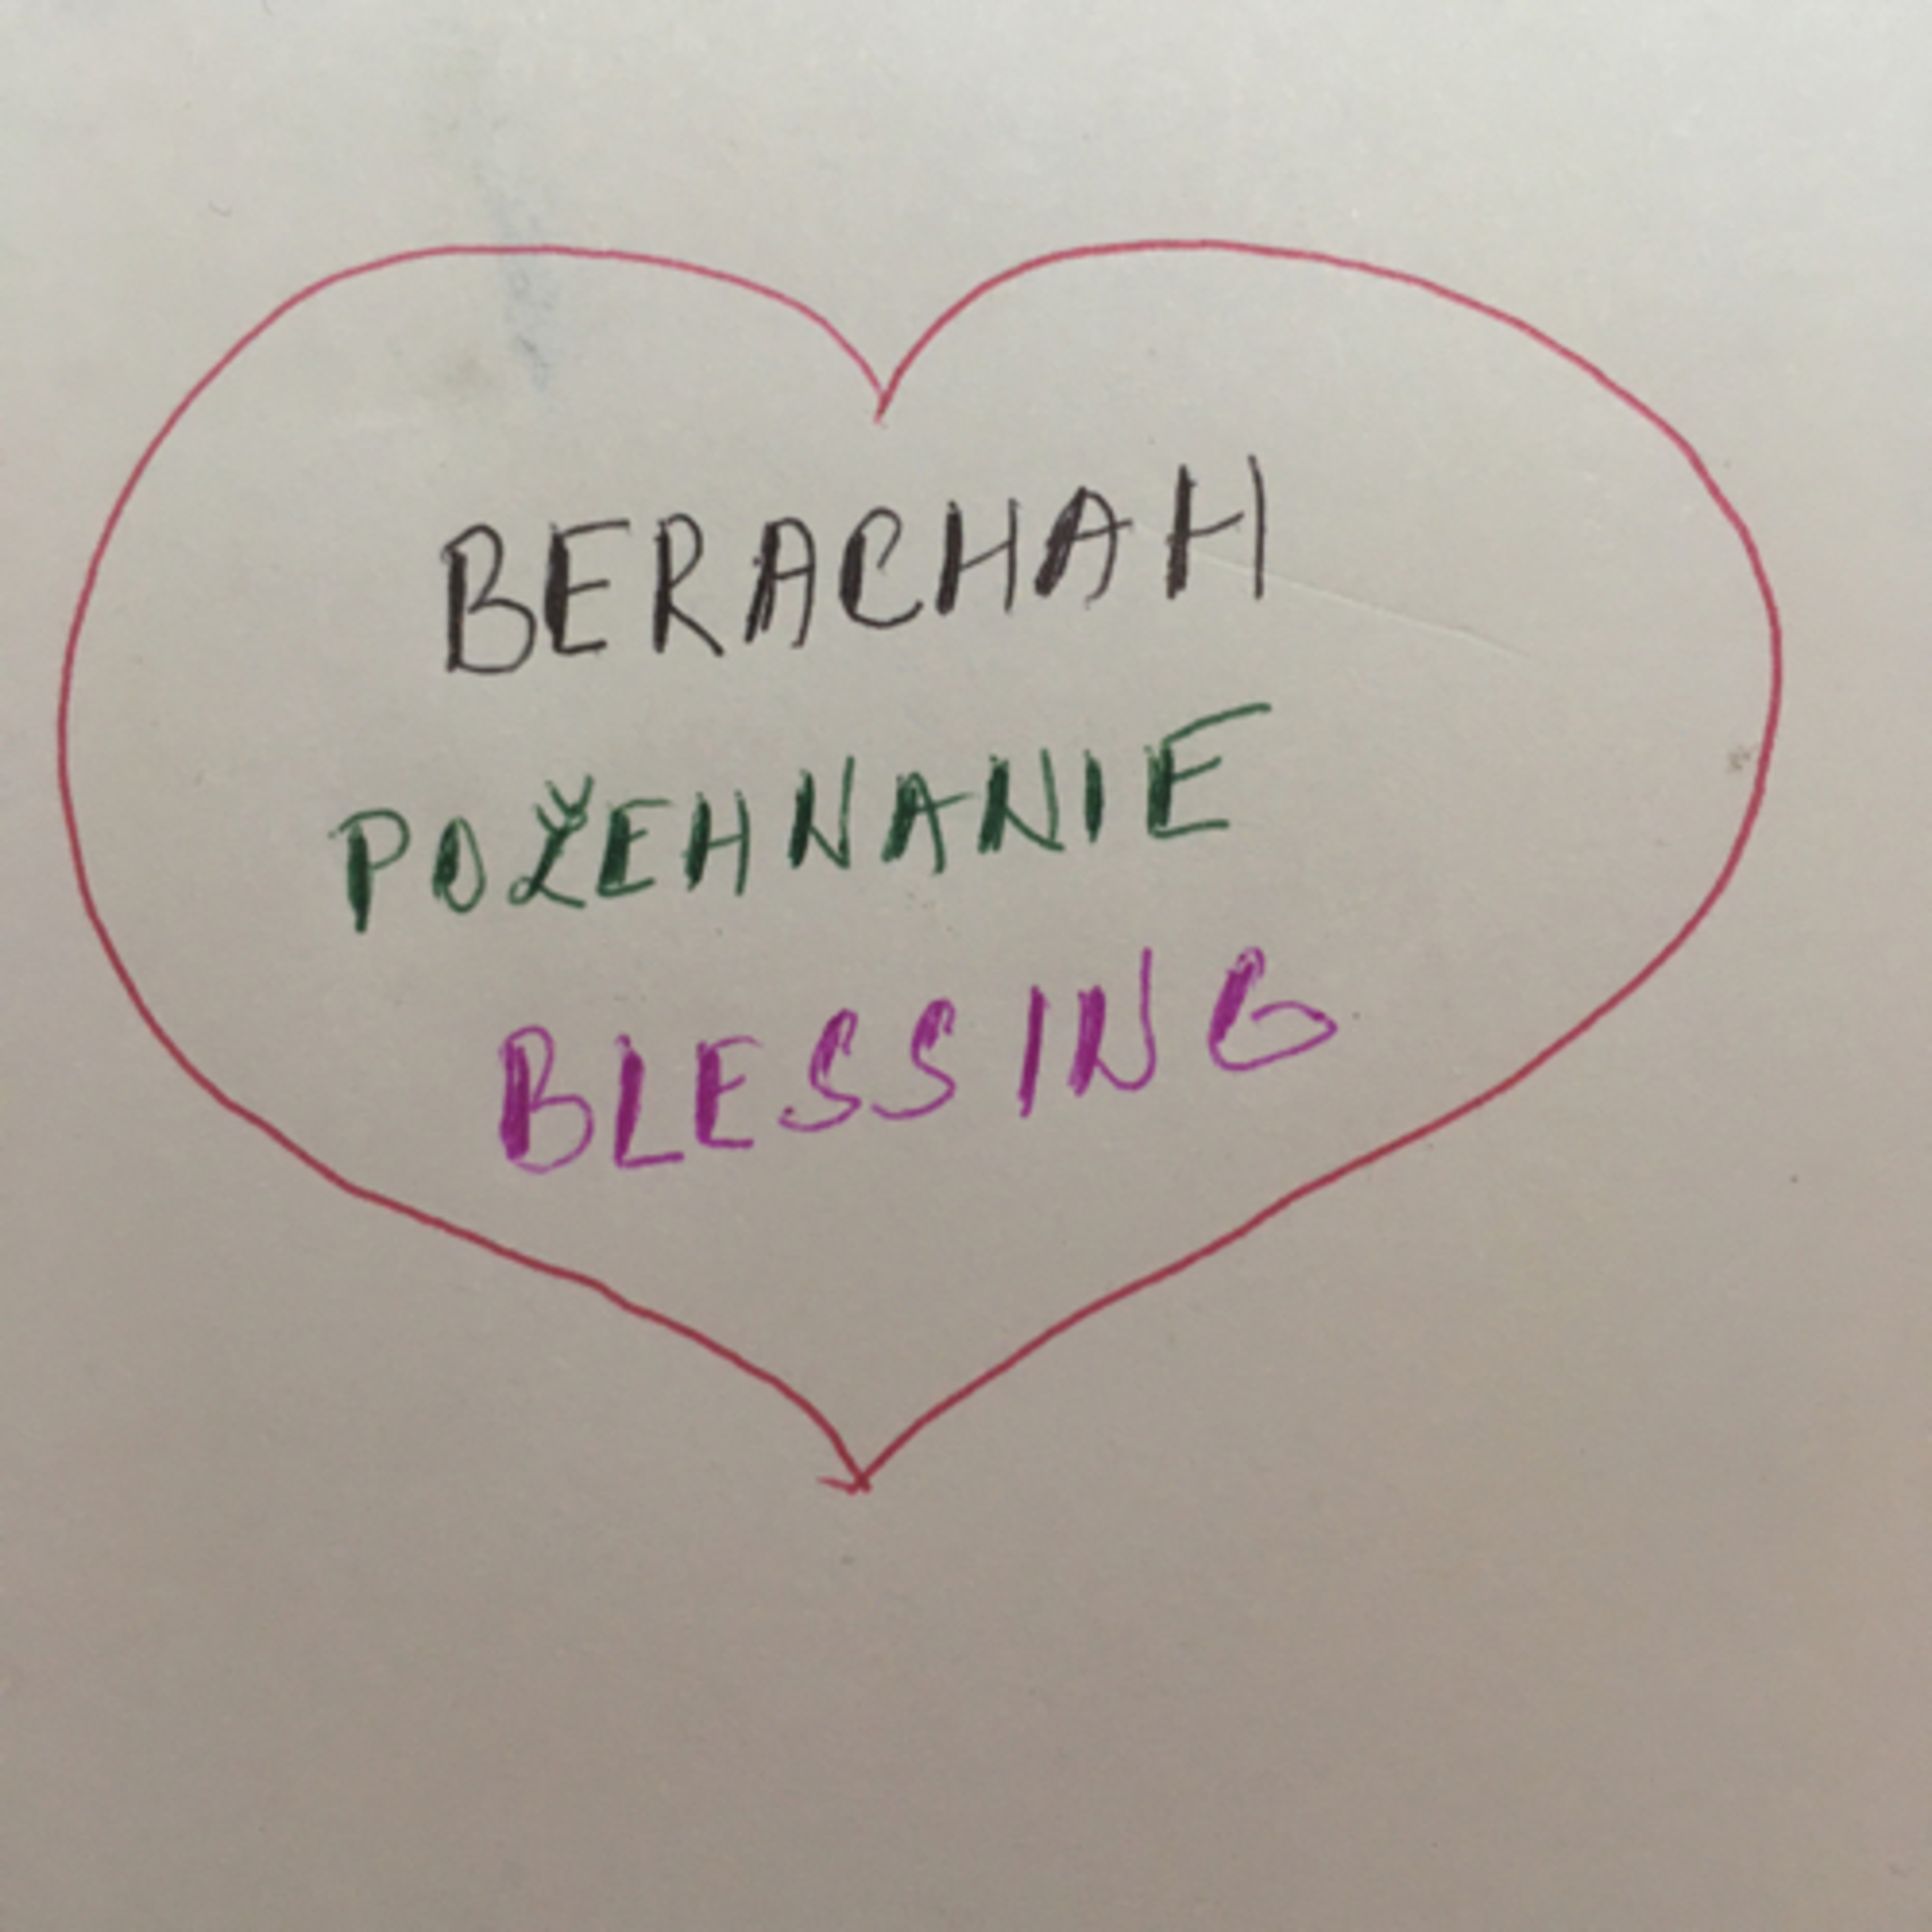 BERACHAH
POŽEHNANIE
BLESSING